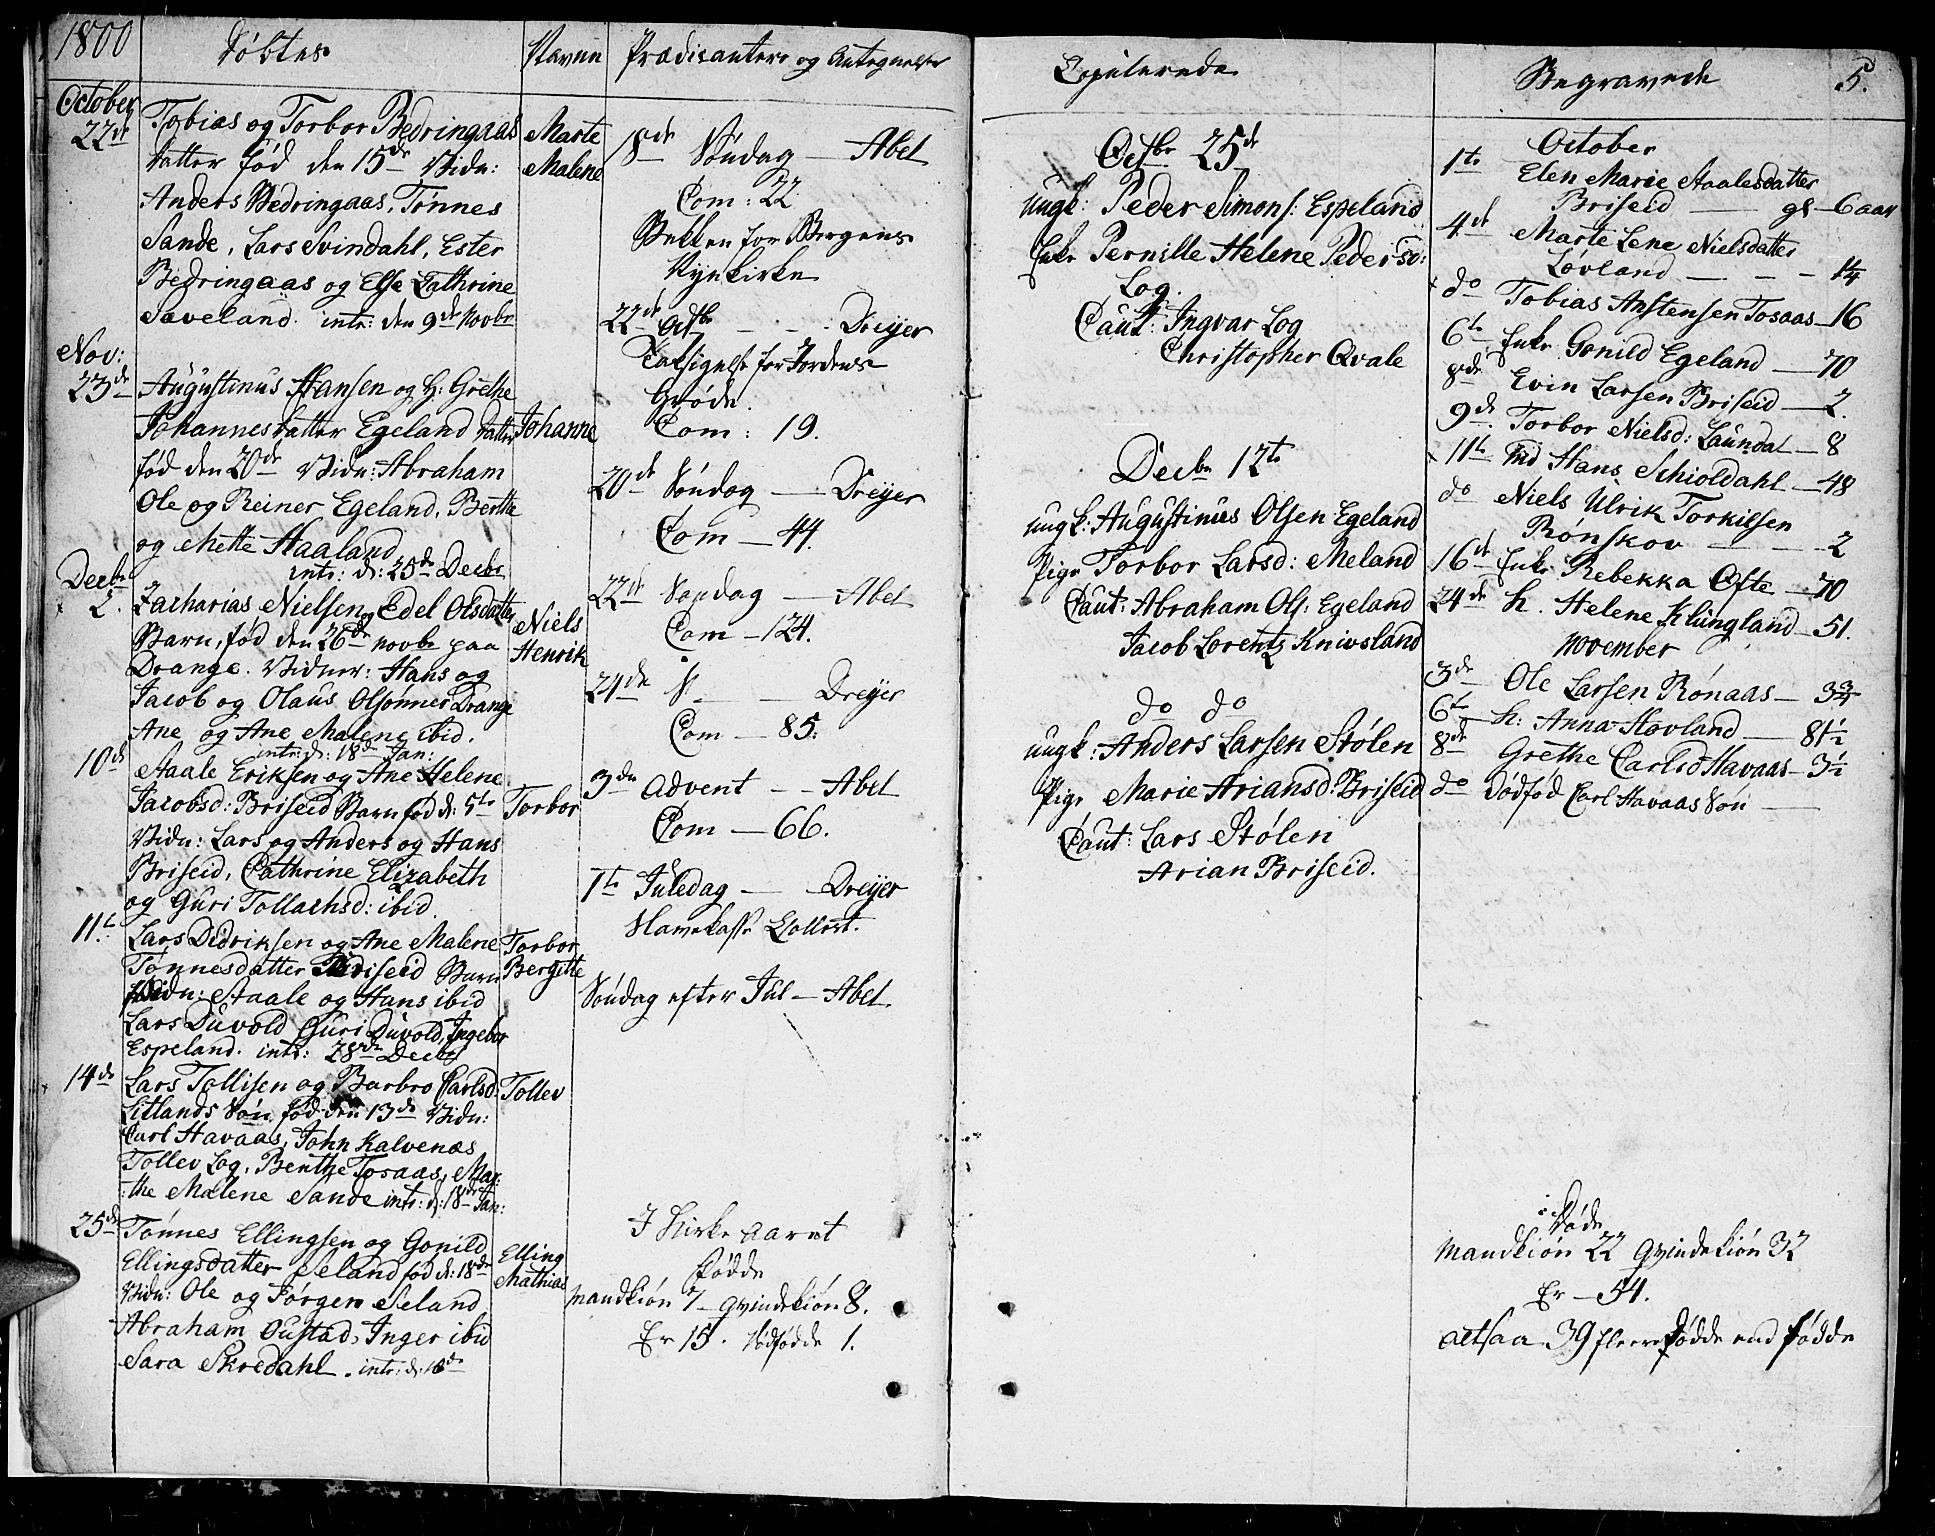 1800
Døbtes
Navne
Prædicantere og Antegnelser
October
22de
Tobias og Torbor Bedringaas
datter fød den 15de Vidn:
Anders Bedringaas, Tønnes
Sande, Lars Svindahl, Ester
Bedringaas og Else Cathrine
Saveland. intr: den 9de Novbr
Marte
Malene
Nov:
23de
Augustinus Hansen og H: Grethe
Johannesdatter Egeland datter
fød den 20de Vidn: Abraham
Ole og Reiner Egeland, Berthe
og Mette Haaland
intr: d: 25de Decbr
Johanne
Decbr
2.
Zacharias Nielsen og Edel Olsdatter
Barn, fød den 26de Novbr paa
Drange. Vidner: Hans og
Jacob og Olaus Olsønner Drange
Ane og Ane Malene ibid.
intr: d: 18de Jan:
Niels
Henrik
10de
Aaale Eriksen og Ane Helene
Jacobsd: Briseid Barn fød d: 5te
Vidn: Lars og Anders og Hans
Briseid, Cathrine Elizabeth
og Guri Tollachsd: ibid.
Torbor
11te
Lars Didriksen og Ane Malene
Tønnesdatter Briseid Barn
Vidn: Aaale og Hans ibid
Lars Duvold Guri Duvold, Ingebor
Espeland. intr: 28de Decbr
Torbor
Bergitte
14de
Lars Tollisen og Barbro Carlsd:
Litlands Søn, fød den 13de Vidn:
Carl Havaas, John Kalvenæs
Tollev Log, Berthe Tosaas, Mar:
:the Malene Sande intr: d: 18de Jan:
Tollev
25de
Tønnes Ellingsen og Gonild
Ellingsdatter Seland fød d: 18de
Vidn: Ole og Jørgen Seland
Abraham Oustad, Inger ibid
Sara Skredahl. intr: d: 18de
Elling
Mathias
18de Søndag — Abel
Com: 22
Bekken for Bergens
Nyekirke
22de Octbr — Dreyer
Taksigelse for Jordens
Grøde.
Com: 19.
20de Søndag — Dreyer
Com — 44.
22de Søndag — Abel
Com — 124.
24de S — Dreyer
Com — 85.
3de Advent — Abel
Com — 66.
1te Juledag — Dreyer
Søndag efter Jul — Abel
I Kirke aaret
Fødde
Mandkiøn 7 — Qvindekiøn 8.
Er 15. Dødfødde 1.
Copulerede
Octbr 25de
ungk: Peder Simons: Espeland
Enke Pernille Helene Pedersd:
Log.
Caut: Ingvar Log
Christopher Qvale
Decbr 12te
ungk: Augustinus Olsen Egeland
Pige Torbor Larsd: Meland
Caut: Abraham Ols: Egeland
Jacob Lorentz Knivsland
do do
ungk: Anders Larsen Stølen
Pige Marie Ariansd: Briseid
Caut: Lars Stølen
Arian Briseid.
Begravede
5.
October
1te Elen Marie Aaalesdatter
Briseid — gl — 6 aar
4de Marte Lene Nielsdatter
Løvland — 1/4
do Tobias Anstensen Tosaas — 16
6te Enke Gonild Egeland — 70
8de Evin Larsen Briseid — 2.
9de Torbor Nielsd: Laundal — 8
11te Md Hans Schioldahl — 48
do Niels Ulrik Torkilsen
Rønskov — 2
16de Enke Rebekka Ofte — 70
24de H. Helene Klungland — 51.
November
3de Ole Larsen Rønaas — 3 3/4
6te H: Anna Hovland — 81 1/2
8de Grethe Carlsd Havaas — 3 1/2
do Dødfød Carl Havaas Søn —
Døde
Mandkiøn 22 Qvindekiøn 32
Er — 54.
altsaa 39 fleere Dødde end fødde